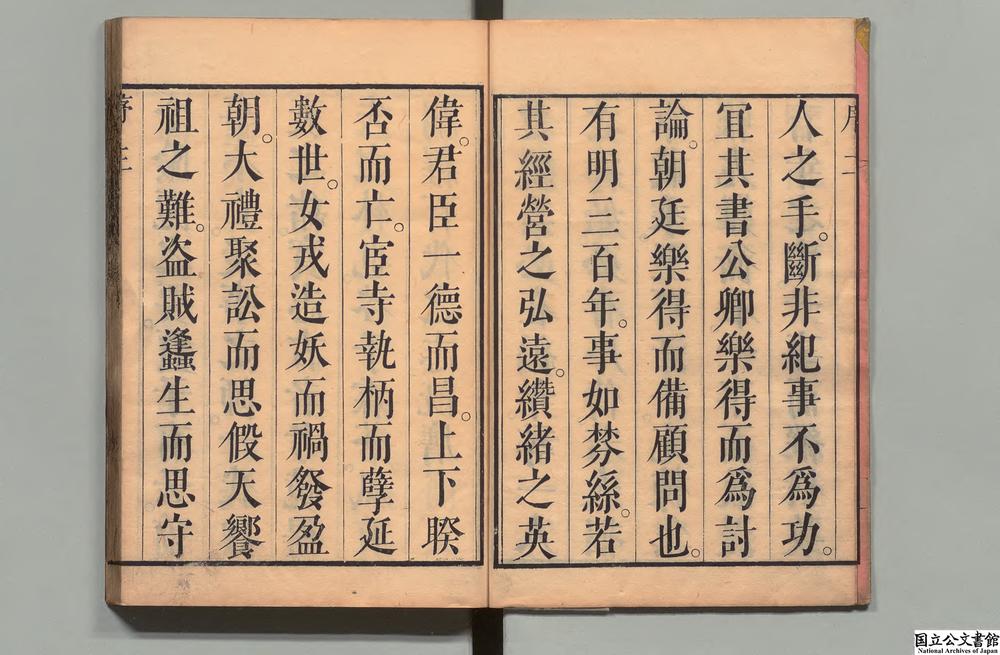 人之手。斷非紀事不爲功。
宜其書公卿樂得而爲討
論。朝廷樂得而備顧問也。
有明三百年。事如棼絲。若
其經營之弘遠。纘緒之英
偉。君臣一德而昌。上下睽
否而亡。宦寺執柄而孽延
數世。女戎造妖而禍發盈
朝。大禮聚訟而思假天饗
祖之難。盜賊蠭生而思守
序三
国立公文書館
National Archives of Japan